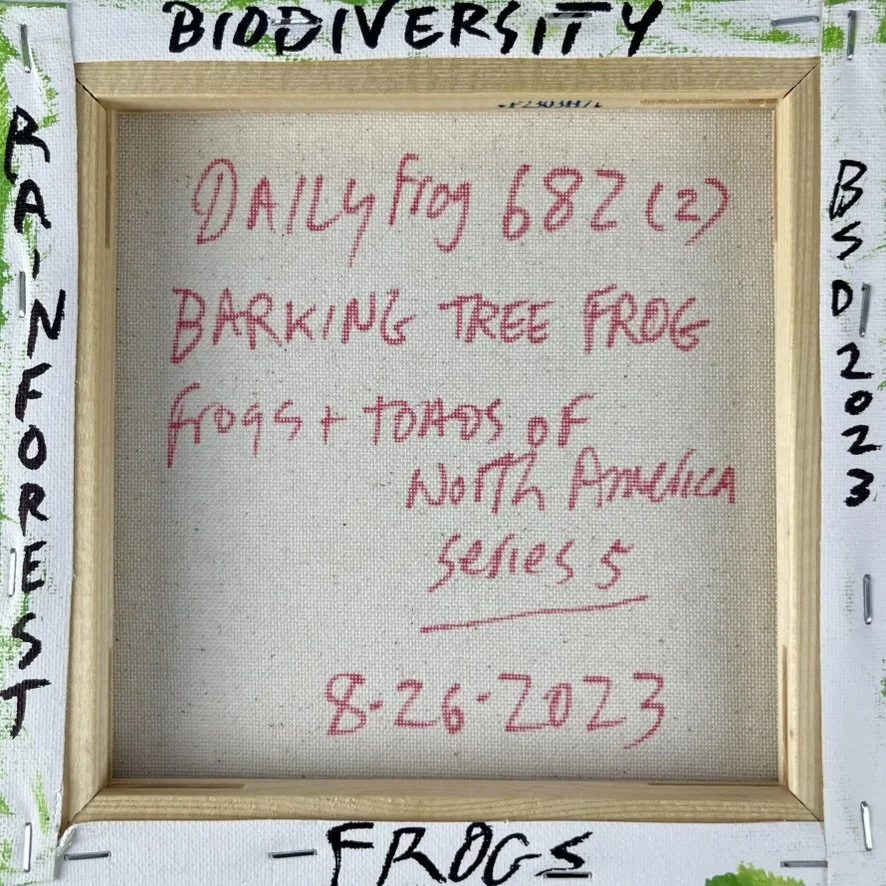 BIODIVERSITY
RAINFOREST
DAILY Frog 682 (2)
BARKING TREE FROG
frogs + TOADS OF
NORTH AMERICA
series 5
8.26.2023
BSD 2023
FROGS